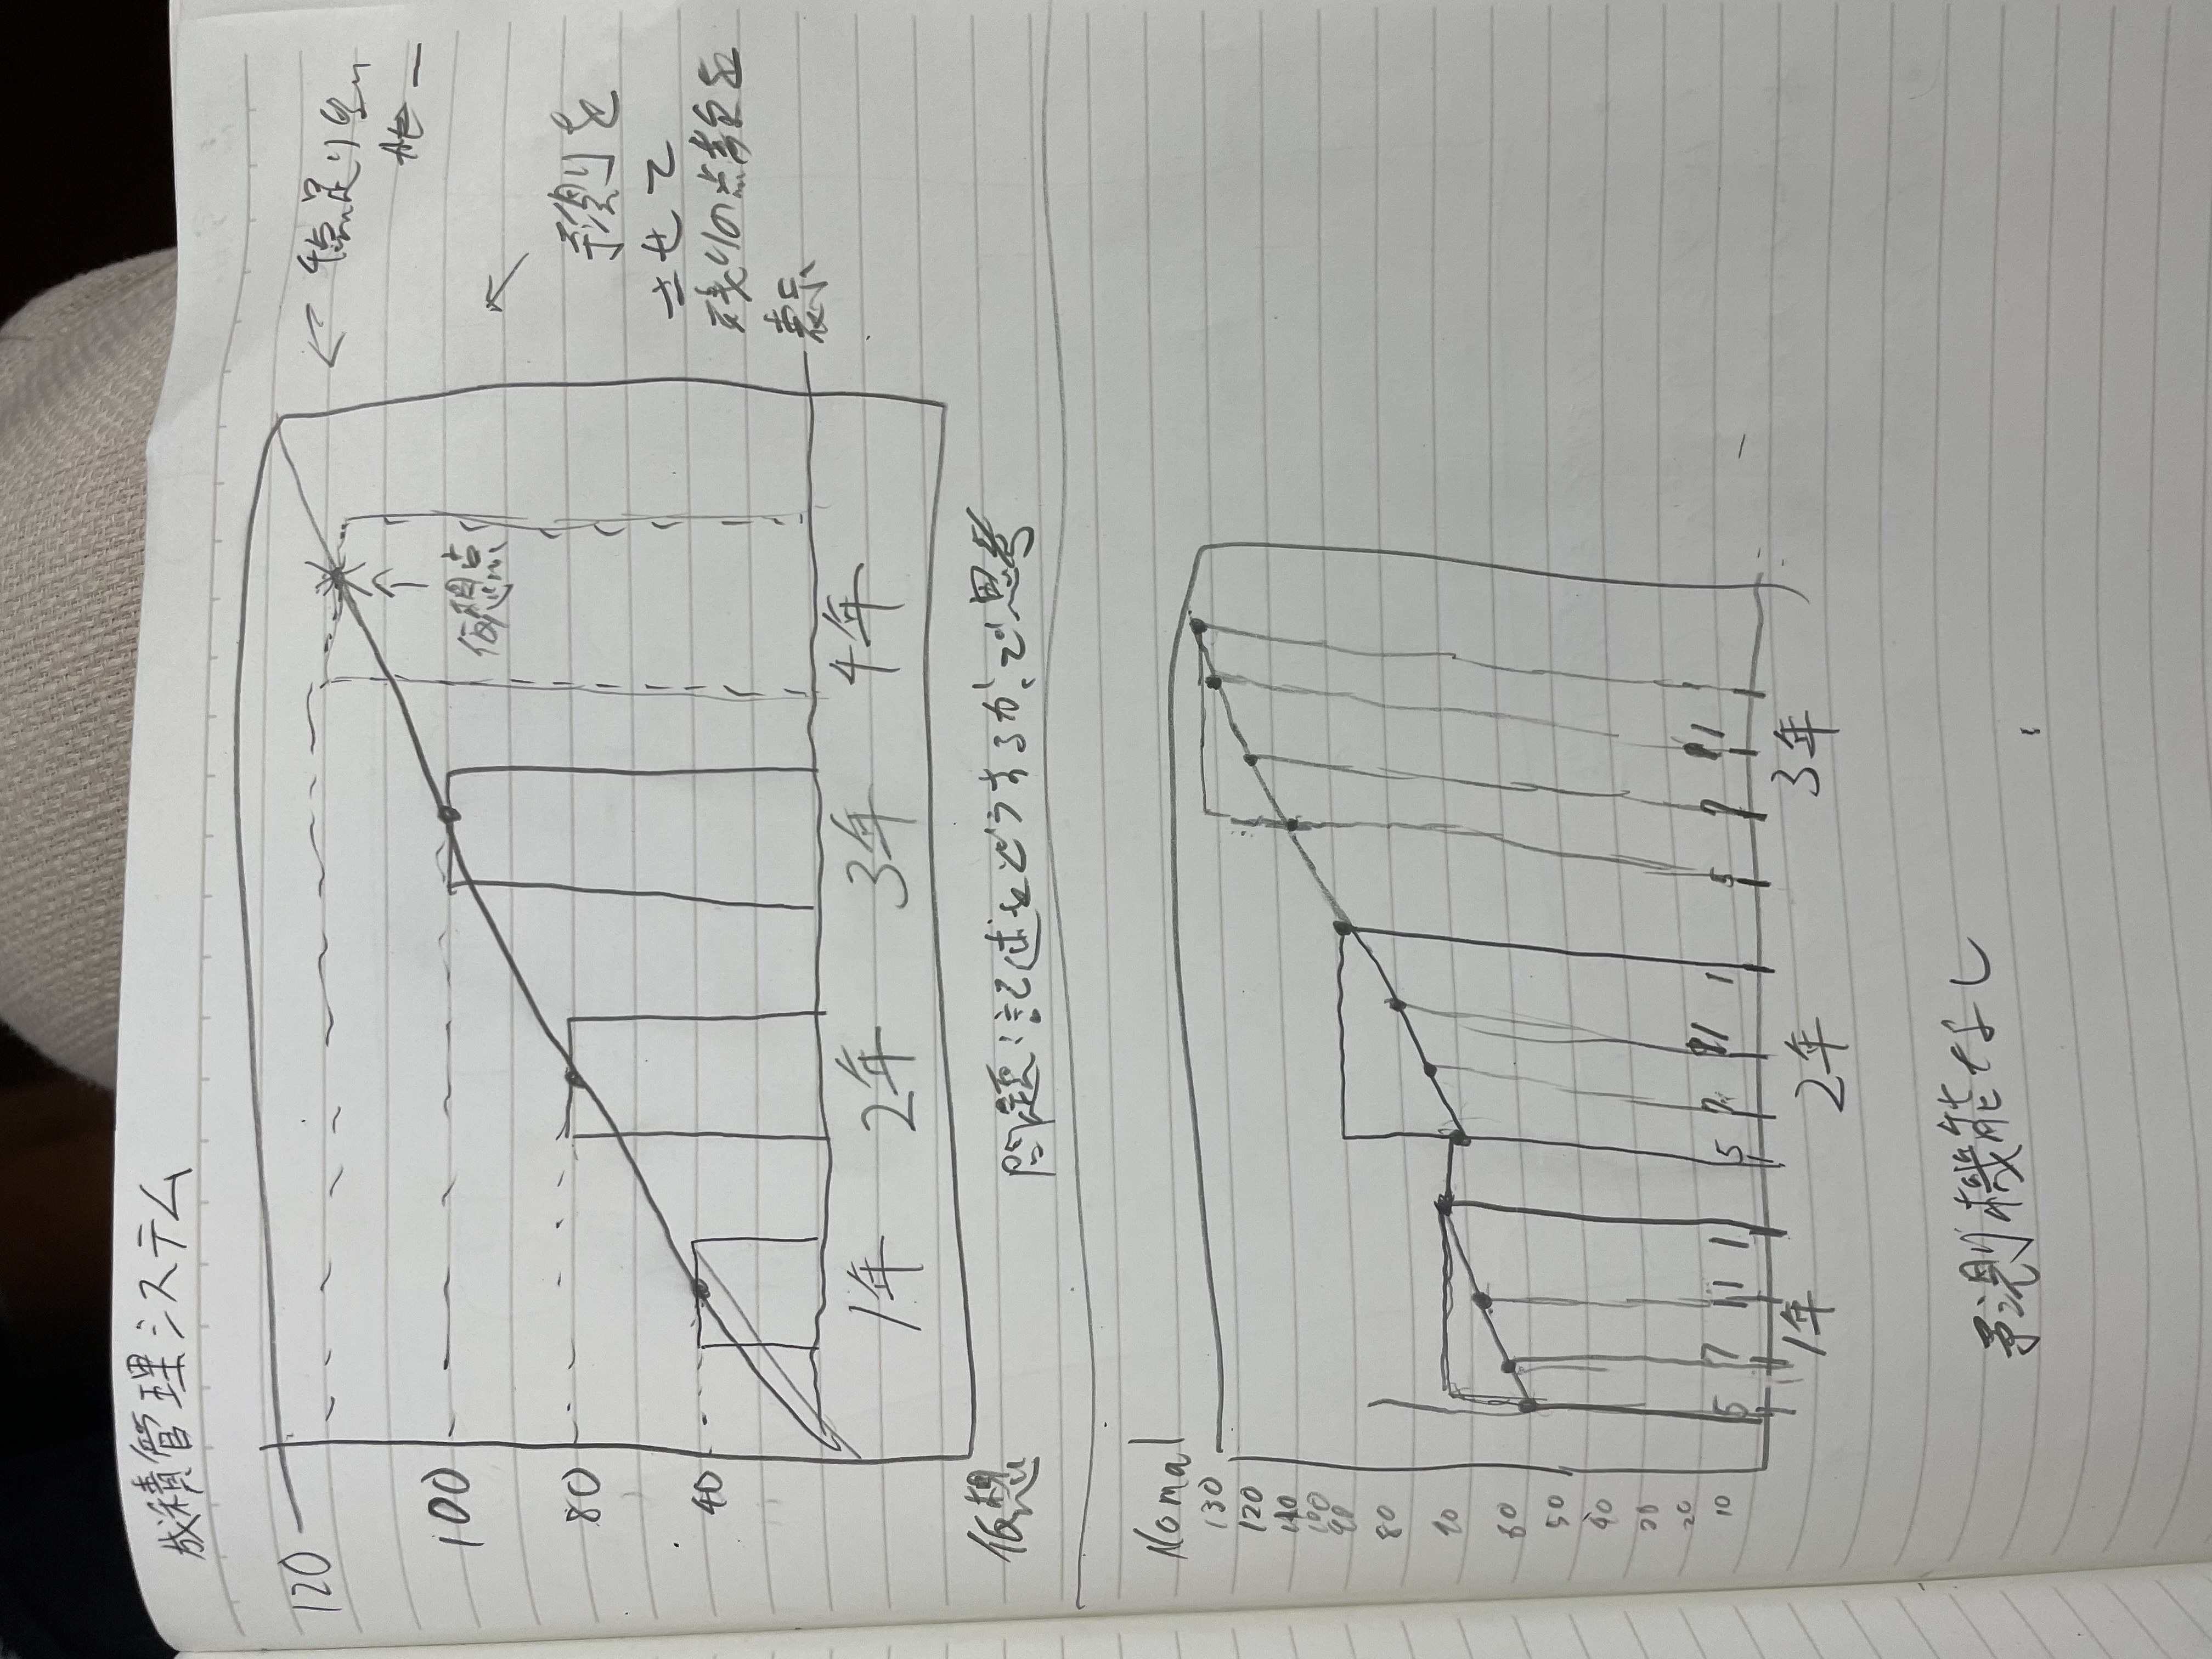 成積管理システム
120
100
80
40
仮想点
1年 2年 3年 4年
4点足りない
予測を
させて
残りの点数を
表示
仮想
問題:記述をどうするか、で思考
Nomal
130
120
110
100
90
80
70
60
50
40
30
20
10
5 7 11 1 5 7 11 1 5 7 11 1
1年 2年 3年
予測機能なし